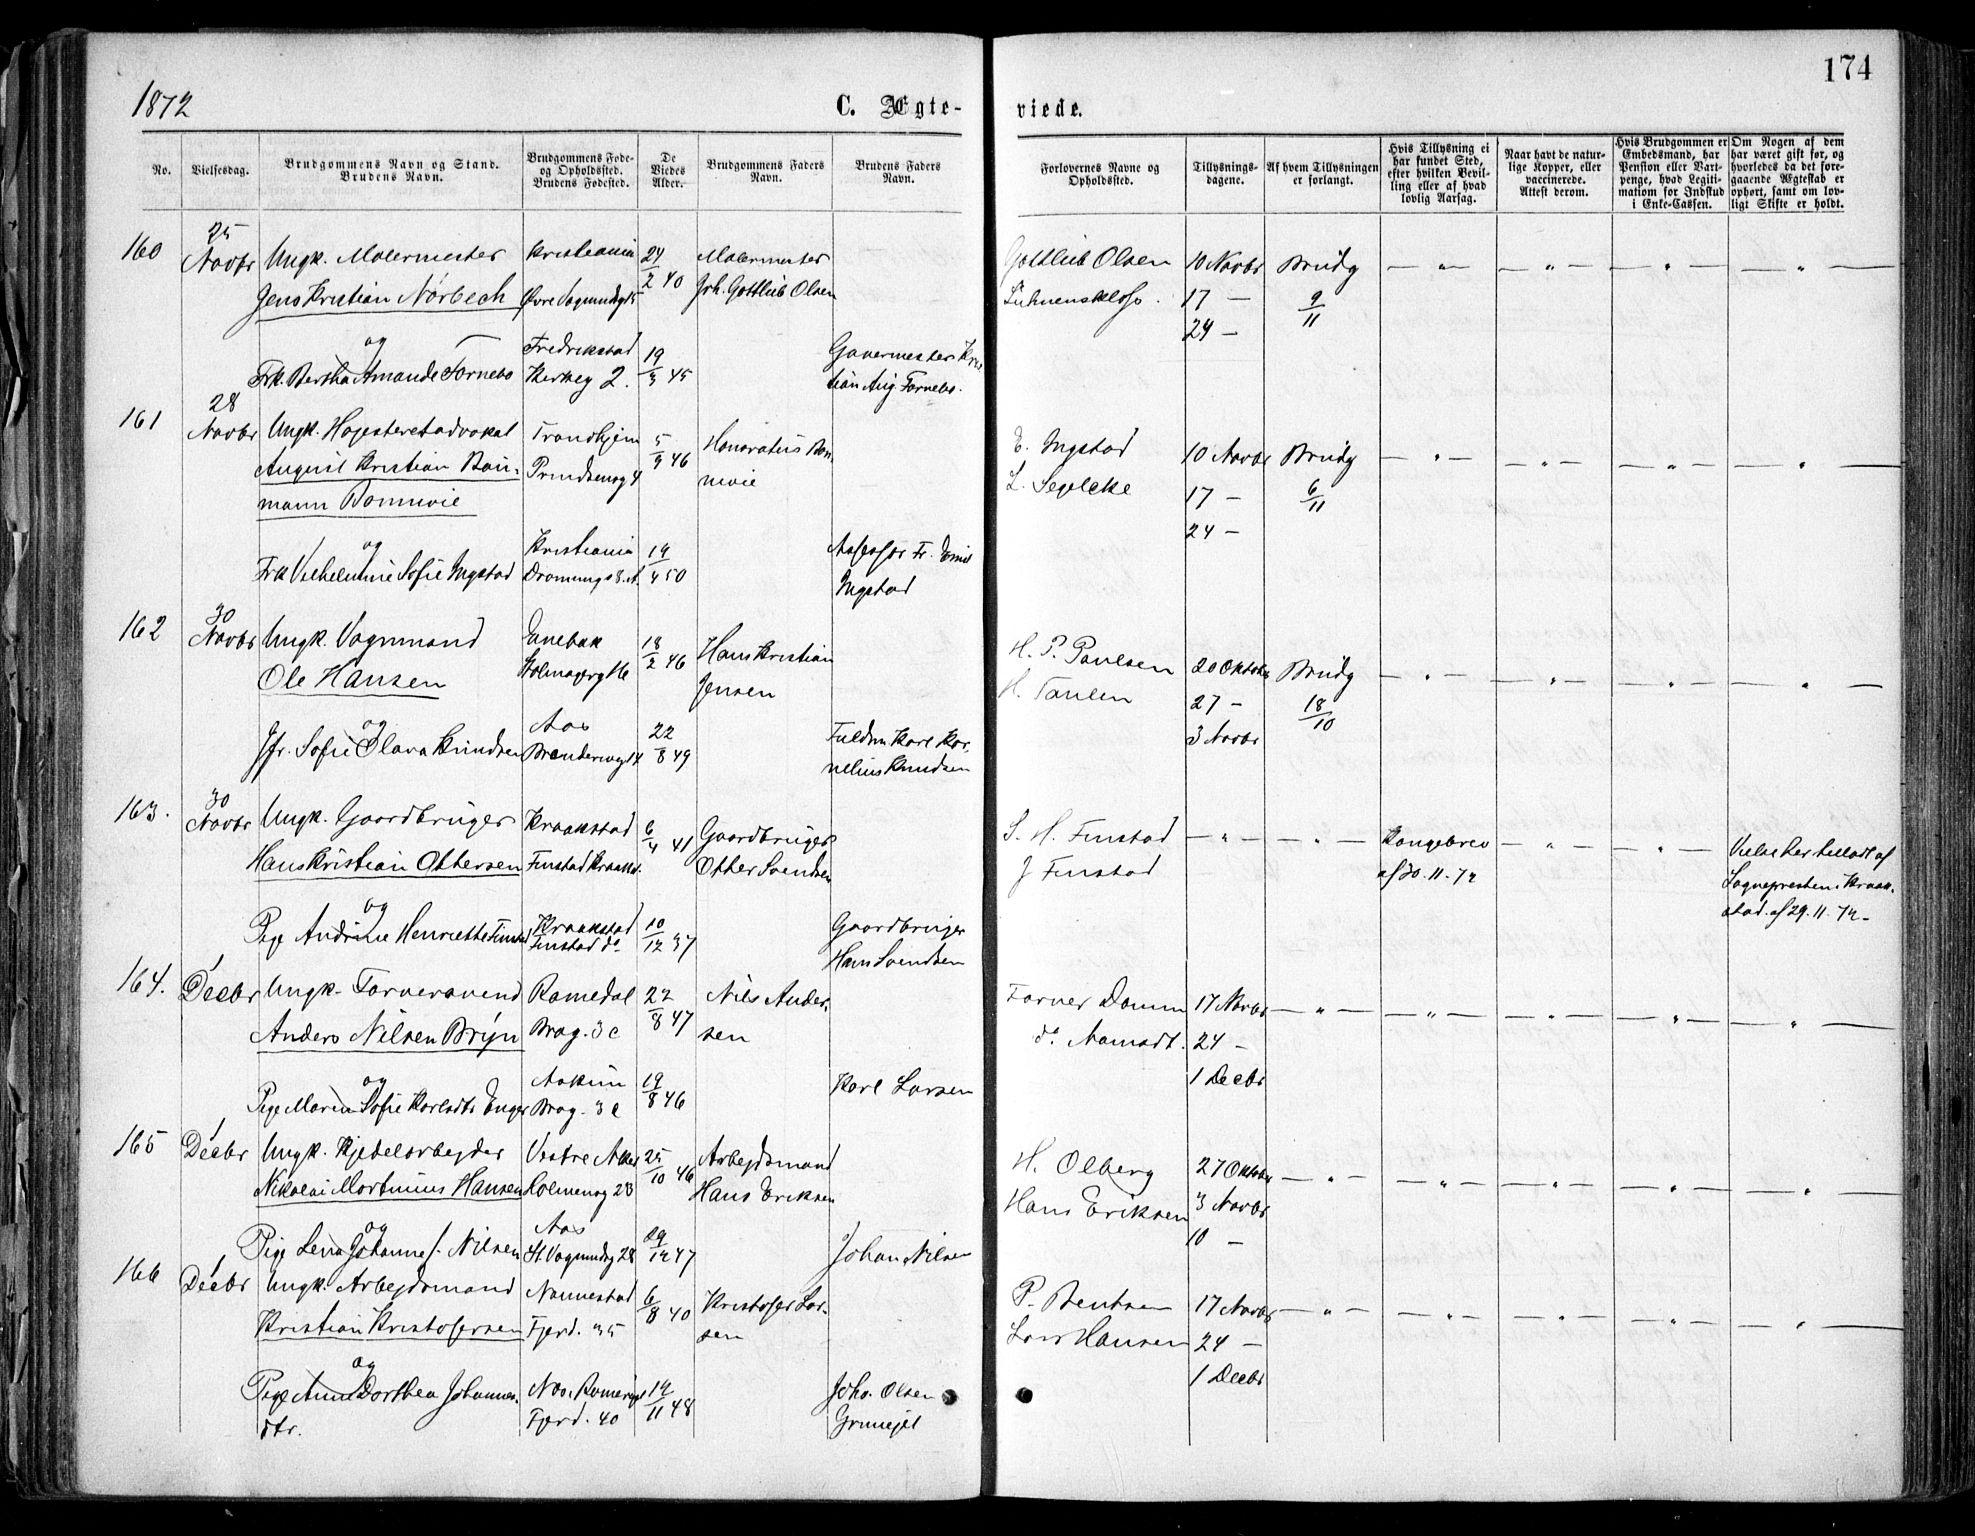 174
1872
C. Ægte-
viede.
No.
Vielsesdag.
Brudgommens Navn og Stand.
Brudens Navn.
Brudgommens Føde-
og Opholdssted.
Brudens Fødested.
De
Viedes
Alder.
Brudgommens Faders
Navn.
Brudens Faders
Navn.
Forlovernes Navne og
Opholdssted.
Tillysnings-
dagene.
Af hvem Tillysningen
er forlangt.
Hvis Tillysning ei
har fundet Sted,
efter hvilken Bevil-
ling eller af hvad
lovlig Aarsag.
Naar havt de natur-
lige Kopper, eller
vaccinerede.
Attest derom.
Hvis Brudgommen er
Embedsmand, har
Pension eller Vart-
penge, hvad Legiti-
mation for Indskud
i Enke-Cassen.
Om Nogen af dem
har været gift før, og
hvorledes da det fore-
gaaende Ægteskab er
ophørt, samt om lov-
ligt Skifte er holdt.
160
25
Novbr
Ungk. Malermester
Jens Kristian Nørbech
Kristiania
24/2 40
Malermester
Joh. Gottlieb Olsen
Gottlieb Olsen
10 Novbr
17 —
24 —
Brudg
9/11
og
Frk. Bertha Amande Tornebo
Fredrikstad
Kirkeg 2.
19/3 45
Garvermester Kris
tian Aug. Tornebo.
161
28
Novbr
Ungk. Høiesteretsadvokat
August Kristian Bau-
mann Bomhoff
Trondhjem
Prindsensg 4
5/9 46
Honoratus Bon
E. Ingstad
L. Segelcke
10 Novbr
17 —
24 —
Brudg
6/11
og
Frk Vilhelmine Sofie Ingstad
Kristiania
19/4 50
Assessor Fr. Emil
Ingstad
162
30
Novbr
Ungk. Vognmand
Ole Hansen
Enebak
18/2 46
Hans Kristian
Jensen
H. P. Paulsen
20 Oktobr
27 —
3 Novbr
Brudg
18/10
og
Jfr. Sofie Olava Knudsen
Aas
22/8 49
Karl Kor-
nelius Knudsen
163.
30
Novbr
Ungk. Gaardbruger
Hans Kristian Ottersen
Kraakstad
Finstad Kraakst.
6/4 41
Gaardbruger
Otter Svendsen
S. H. Finstad
J Finstad
Kongebrev
af 30.11.72
Vielse her tilladt af
Sognepresten i Kraak-
stad af 29.11.72
og
Pige Andrine Henriette Finstad
Kraakstad
Finstad do
10/12 37
Gaardbruger
Hans Svendsen
164.
1
Decbr
Ungk. Farversvend
Anders Nilsen Bryn
Romedal
Brog. 3 c
22/8 47
Nils Ander-
sen
Farver Damm
do Aamodt.
17 Novbr
24 —
1 Decbr
og
Pige Maren Sofie Karlsdtr Enger
Brog. 3 c
19/8 46
Karl Larsen
165
1
Decbr
Ungk. Kjedelarbejder
Nikolai Martinius Hansen
Vestre Aker
Holmensg 28
25/10 46
Arbejdsmand
Hans Eriksen
H. Olberg
Hans Eriksen
27 Oktobr
3 Novbr
10 —
og
Pige Lena Johanne J. Nilsen
Aas
St. Vognmdsg 28
29/12 47
Johan Nilsen
166
1
Decbr
Ungk. Arbejdsmand
Kristian Kristofersen
Nannestad
Fjerd. 35
6/8 40
Kristofer Lar-
sen
P. Bentsen
Lars Hansen
17 Novbr
24 —
1 Decbr
og
Pige Anne Dorthea Johannes-
dtr.
Nes. Romerige
Fjerd. 40
14/11 48
Johs. Olsen